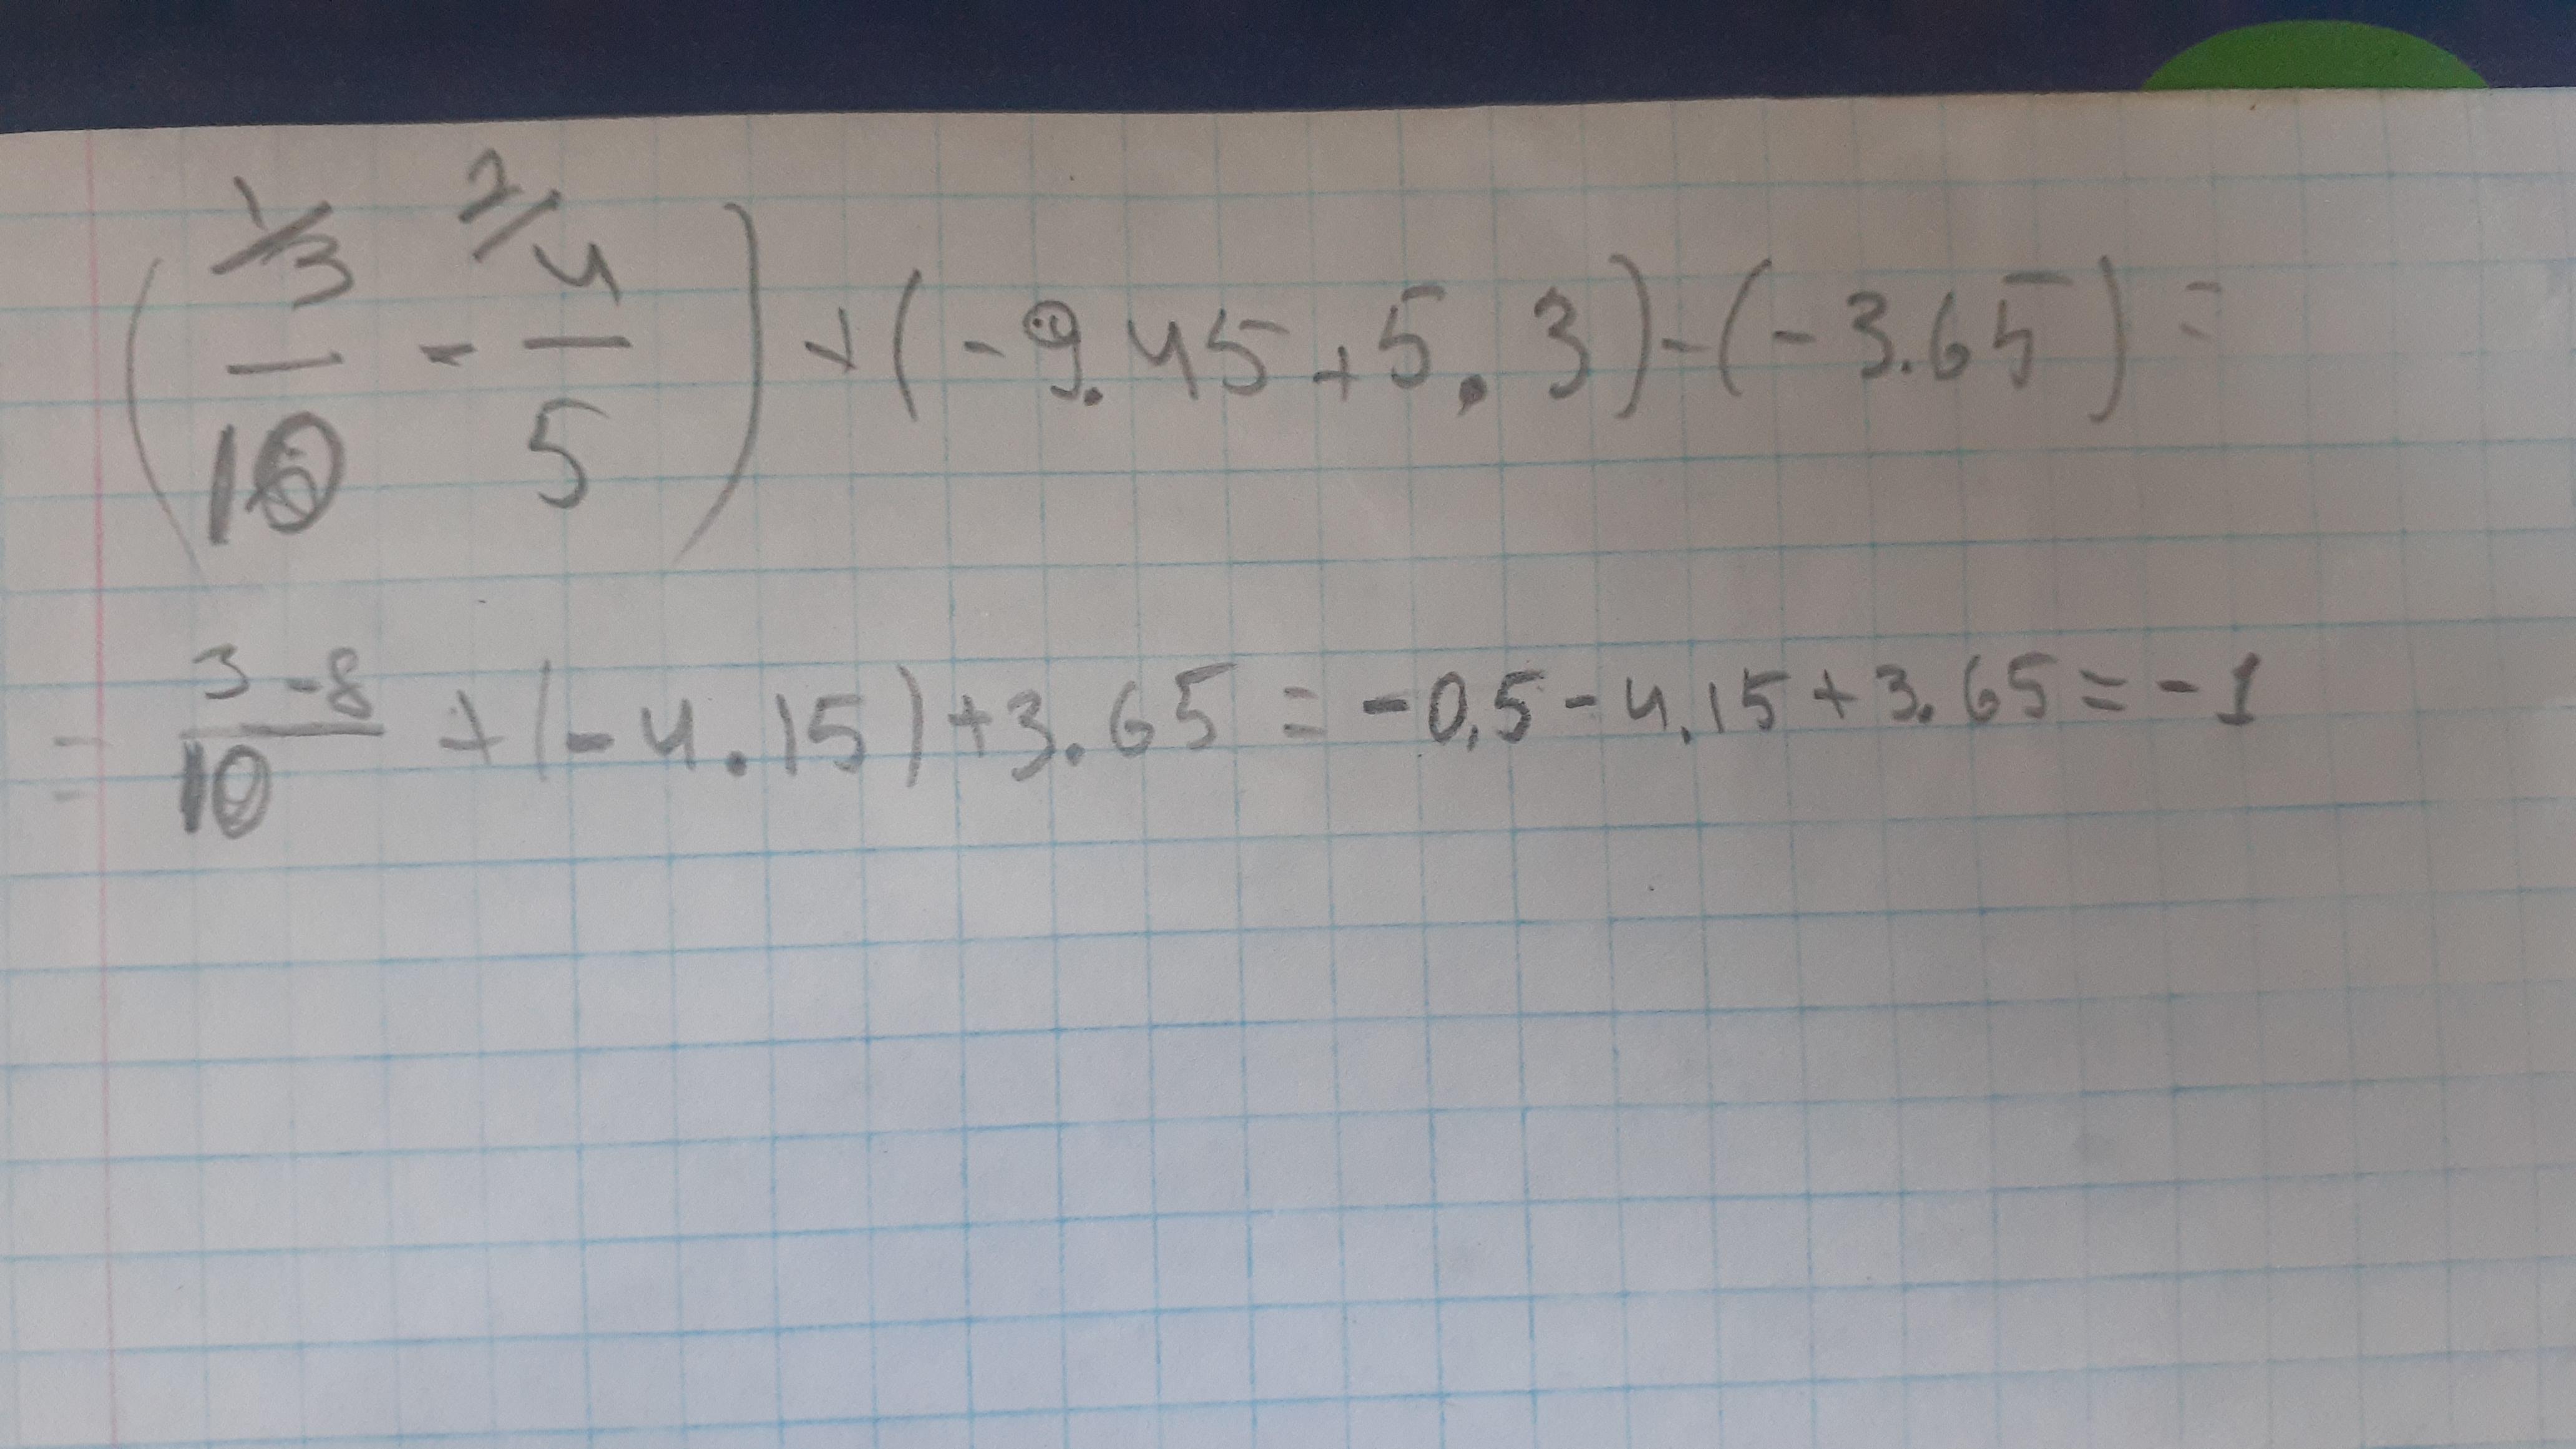 (1/3/10 - 2/4/5) + (-9.45+5.3)-(-3.65)=
= 3-8/10 + (-4.15)+3.65 = -0.5-4.15+3.65=-1